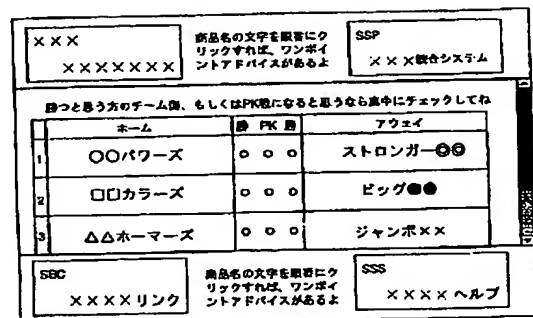 ×××
×××××××
商品名の文字を順番にク
リックすれば、ワンポイ
ントアドバイスがあるよ
SSP
×××統合システム
勝つと思う方のチーム側、もしくはPK戦になると思うなら真中にチェックしてね
ホーム 勝 PK 勝 アウェイ
1 〇〇パワーズ ○ ○ ○ ストロンガー◎◎
2 □□カラーズ ○ ○ ○ ビッグ●●
3 △△ホーマーズ ○ ○ ○ ジャンボ××
SBC
××××リンク
商品名の文字を順番にク
リックすれば、ワンポイ
ントアドバイスがあるよ
SSS
××××ヘルプ